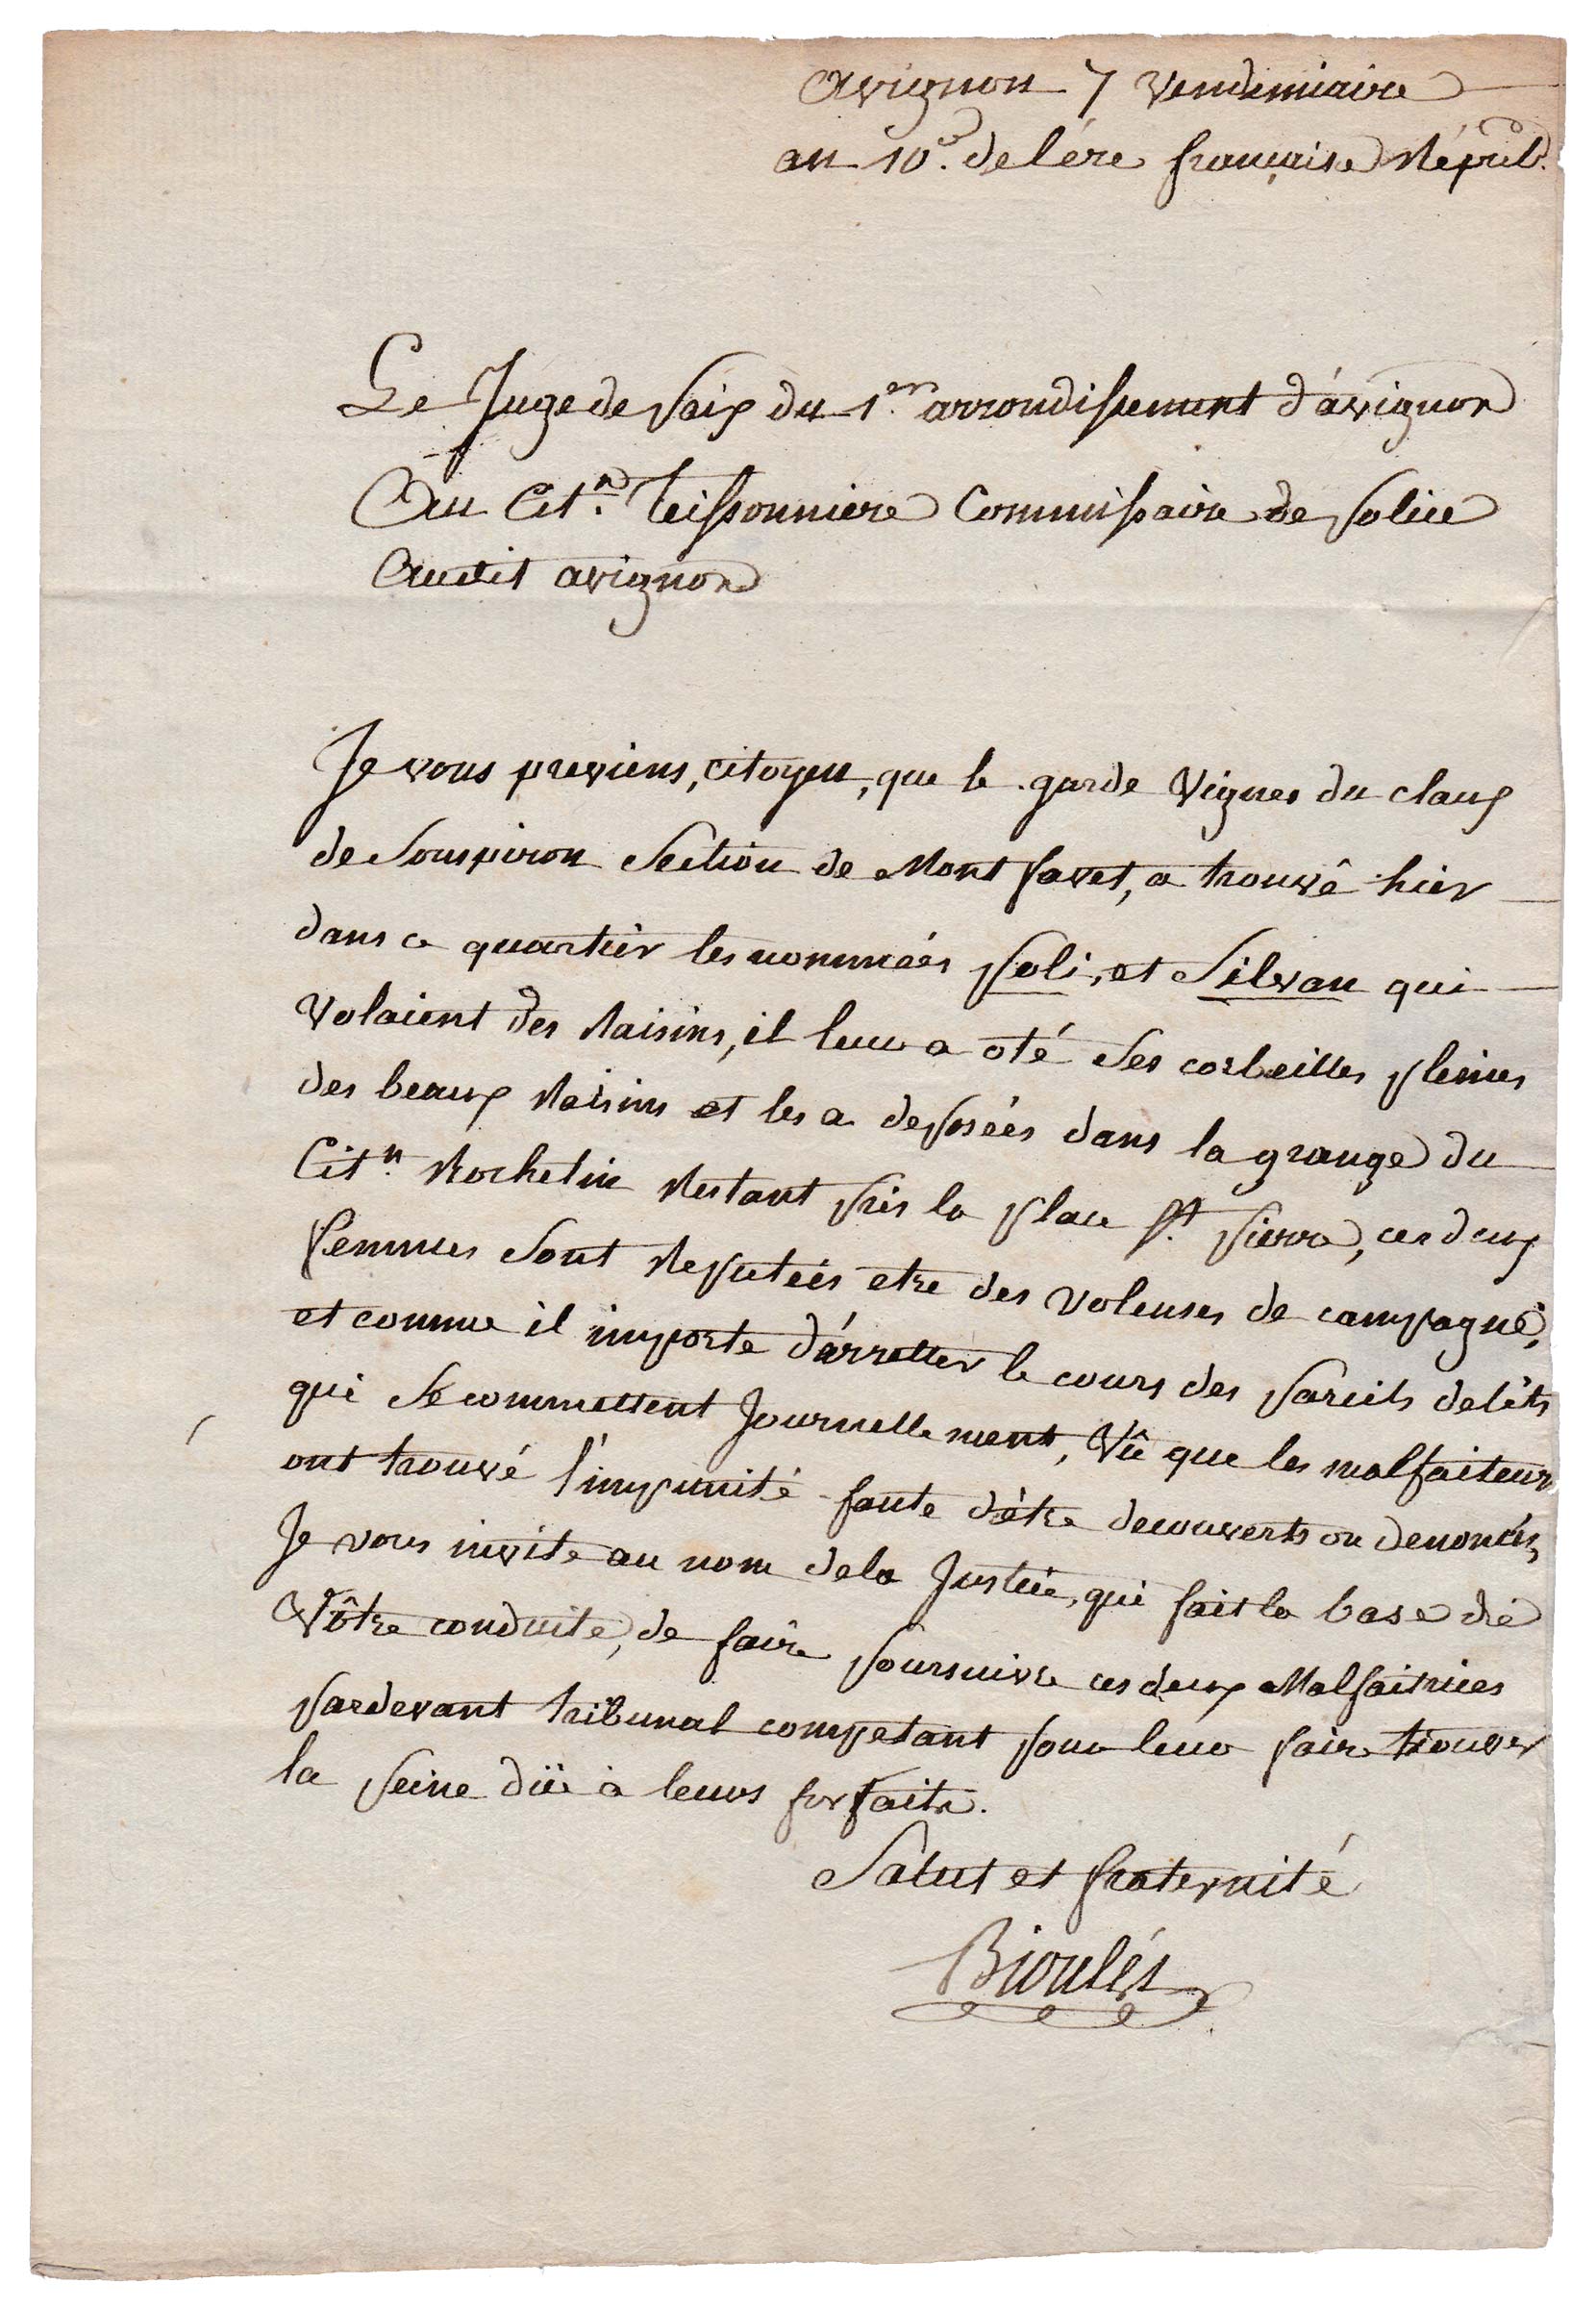 Avignon 7 Vendemiaire
an 10.e de l'ére française Répub.
Le Juge de Paix du 1.er arrondissement d'avignon
Au Cit.n Teissonniere Commissaire de Police
Audit avignon
Je vous previens, citoyen, que le garde Vignes du claux
de Souspiron Section de Montfavet, a trouvé hier
dans ce quartier les nommées Poli, et Silvan qui
Volaient des Raisins, il leur a oté Ses corbeilles pleines
des beaux Raisins et les a deposées dans la grange du
Cit.n Rochetin Restant près la place S.t Pierre, ces deux
femmes Sont Reputées etre des voleuses de campagne,
et comme il importe d'arretter le cours des pareils delits
qui Se commettent Journellement, Vû que les malfaiteurs
ont trouvé l'impunité faute d'être decouverts ou denoncés,
Je vous invite au nom de la Justice, qui fait la base de
Vôtre conduite, de faire poursuivre ces deux Malfaitrices
pardevant tribunal competant pour leur faire trouver
la peine düe à leurs forfaits.
Salut et fraternité
Bioulés